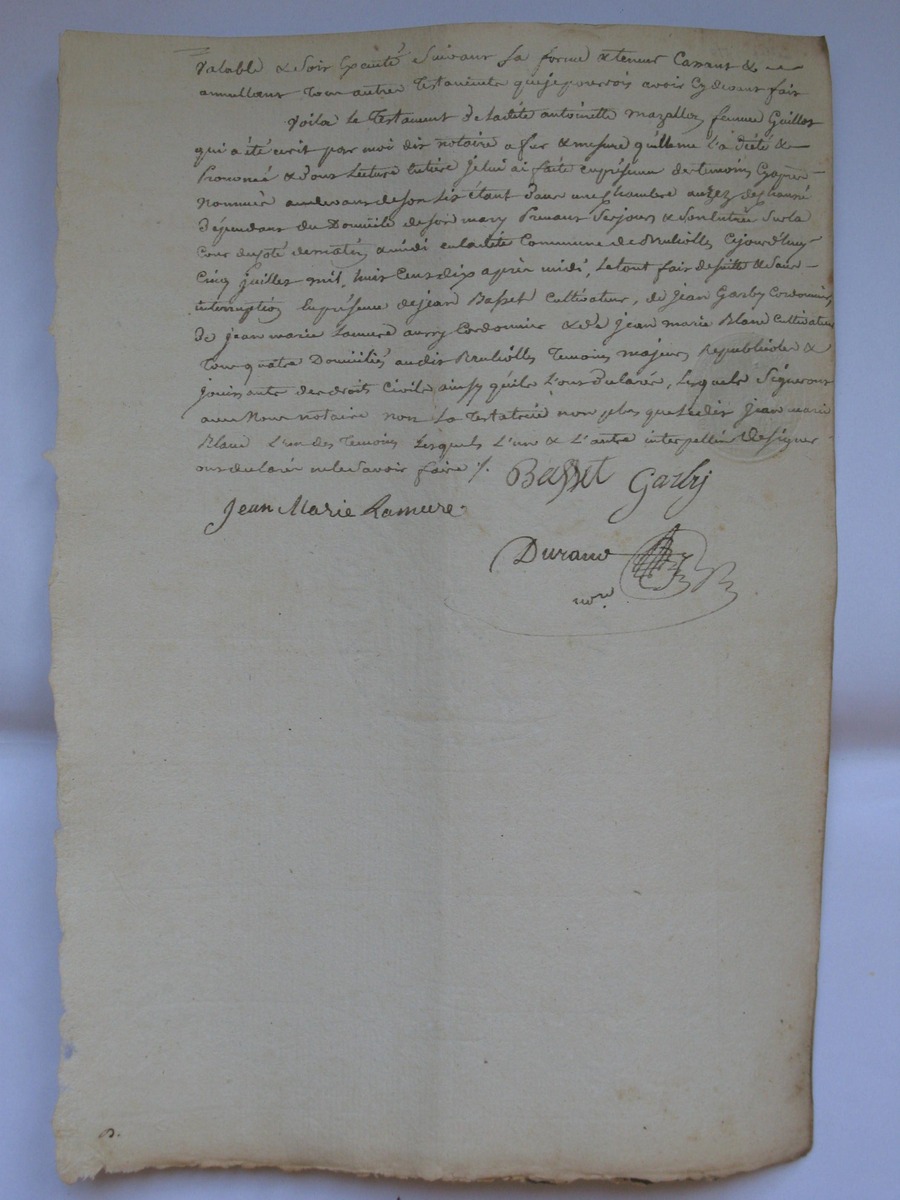 valable & soit Exécuté Suivant Sa forme & teneur Cassant &
annullant tous autres Testaments que je pourrois avoir Cy devant fait
Voila le Testament de ladite antoinette mazallon femme Guillot
qui a été écrit par moi dit notaire a fur & mesure qu'elle me l'a dicté &
Prononcé & dont Lecture entiere Je lui ai faite en présence des temoins Cy après
Nommés au devant de son Lit étant dans une chambre au rez de chaussé
dépendant du Domicile de son mary Prenant Ses jours & Son Entrée Sur la
Cour du côté de matin & midi en ladite Commune de Brulioles Cejourd'huy
Cinq juillet mil huit Cent dix après midi, Le tout fait de suitte & Sans
interruption En présence de jean Basset Cultivateur, de Jean Garby Cordonnier
de jean marie Lamure aussy Cordonnier & de Jean marie Blanc Cultivateur
tous quatre Domiciliés audit Brulioles temoins majeurs Republicoles &
jouissants des droits Civils ainsy qu'ils L'ont déclaré, Lesquels Signeront
avec Nous notaire non La Testatrice non plus que Ledit Jean marie
Blanc L'un des Temoins Lesquels L'un & L'autre interpellés de signer
ont déclaré ne le Savoir faire ./.
Basset Garby
Jean Marie Lamure
Durand
nore